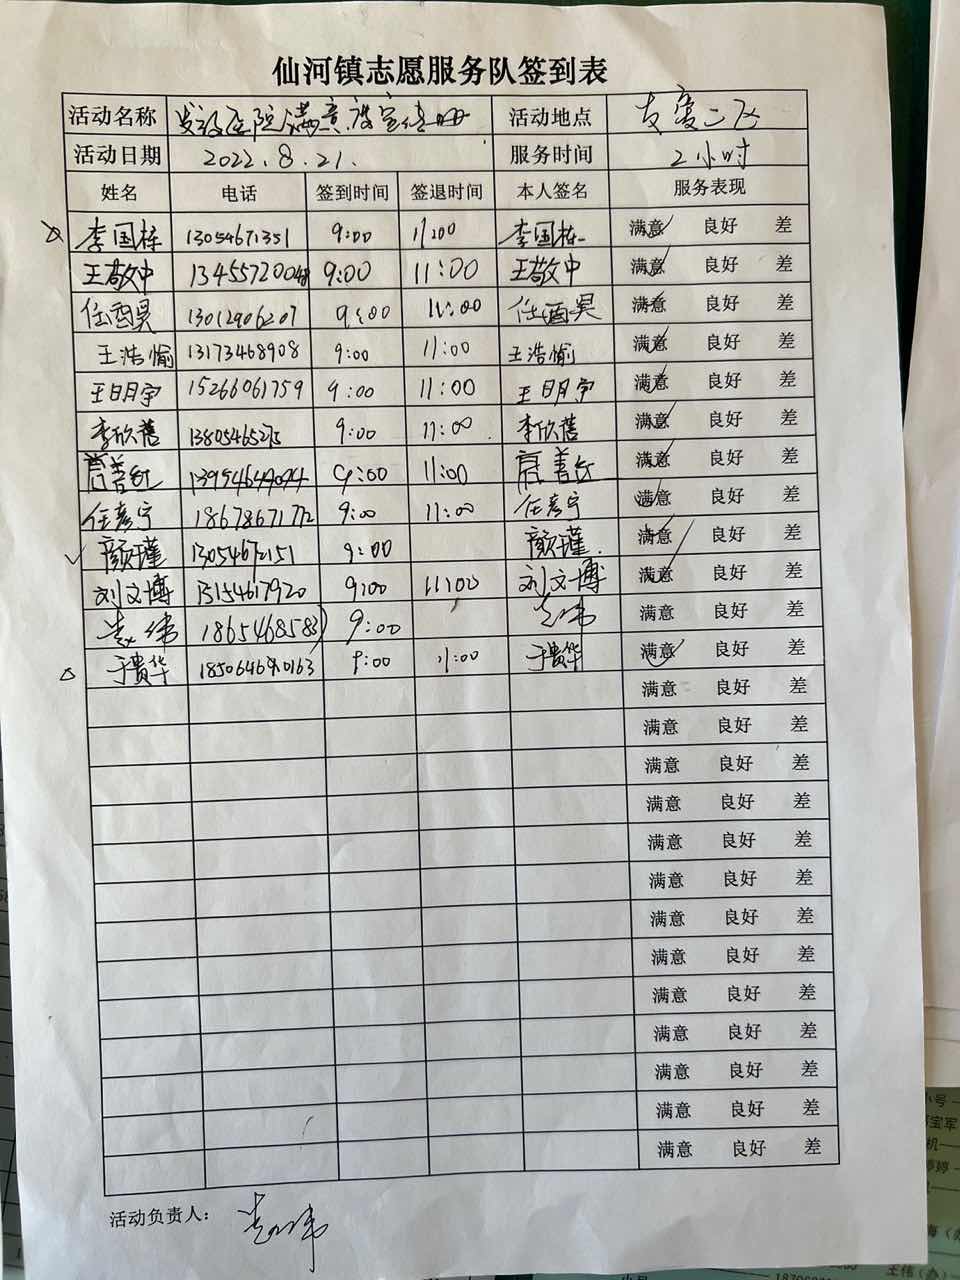 仙河镇志愿服务队签到表
活动名称 发放医院满意度宣传册 活动地点 友爱二区
活动日期 2022.8.21. 服务时间 2小时
姓名 电话 签到时间 签退时间 本人签名 服务表现
李国栋 13054671351 9:00 11:00 李国栋 满意 良好 差
王敬中 13455720048 9:00 11:00 王敬中 满意 良好 差
任酉昊 13012906207 9:00 11:00 任酉昊 满意 良好 差
王浩愉 13173468908 9:00 11:00 王浩愉 满意 良好 差
王明宇 15266061759 9:00 11:00 王明宇 满意 良好 差
李欣蓓 13805465275 9:00 11:00 李欣蓓 满意 良好 差
善红 9:00 11:00 善红 满意 良好 差
任彦宁 18678671772 9:00 11:00 任彦宁 满意 良好 差
颜瑾 13054672151 9:00 颜瑾. 满意 良好 差
刘文博 15154617920 9:00 11:00 刘文博 满意 良好 差
伟 9:00 伟 满意 良好 差
于贵华 9:00 11:00 于贵华 满意 良好 差
满意 良好 差
满意 良好 差
满意 良好 差
满意 良好 差
满意 良好 差
满意 良好 差
满意 良好 差
满意 良好 差
满意 良好 差
满意 良好 差
满意 良好 差
满意 良好 差
满意 良好 差
活动负责人：